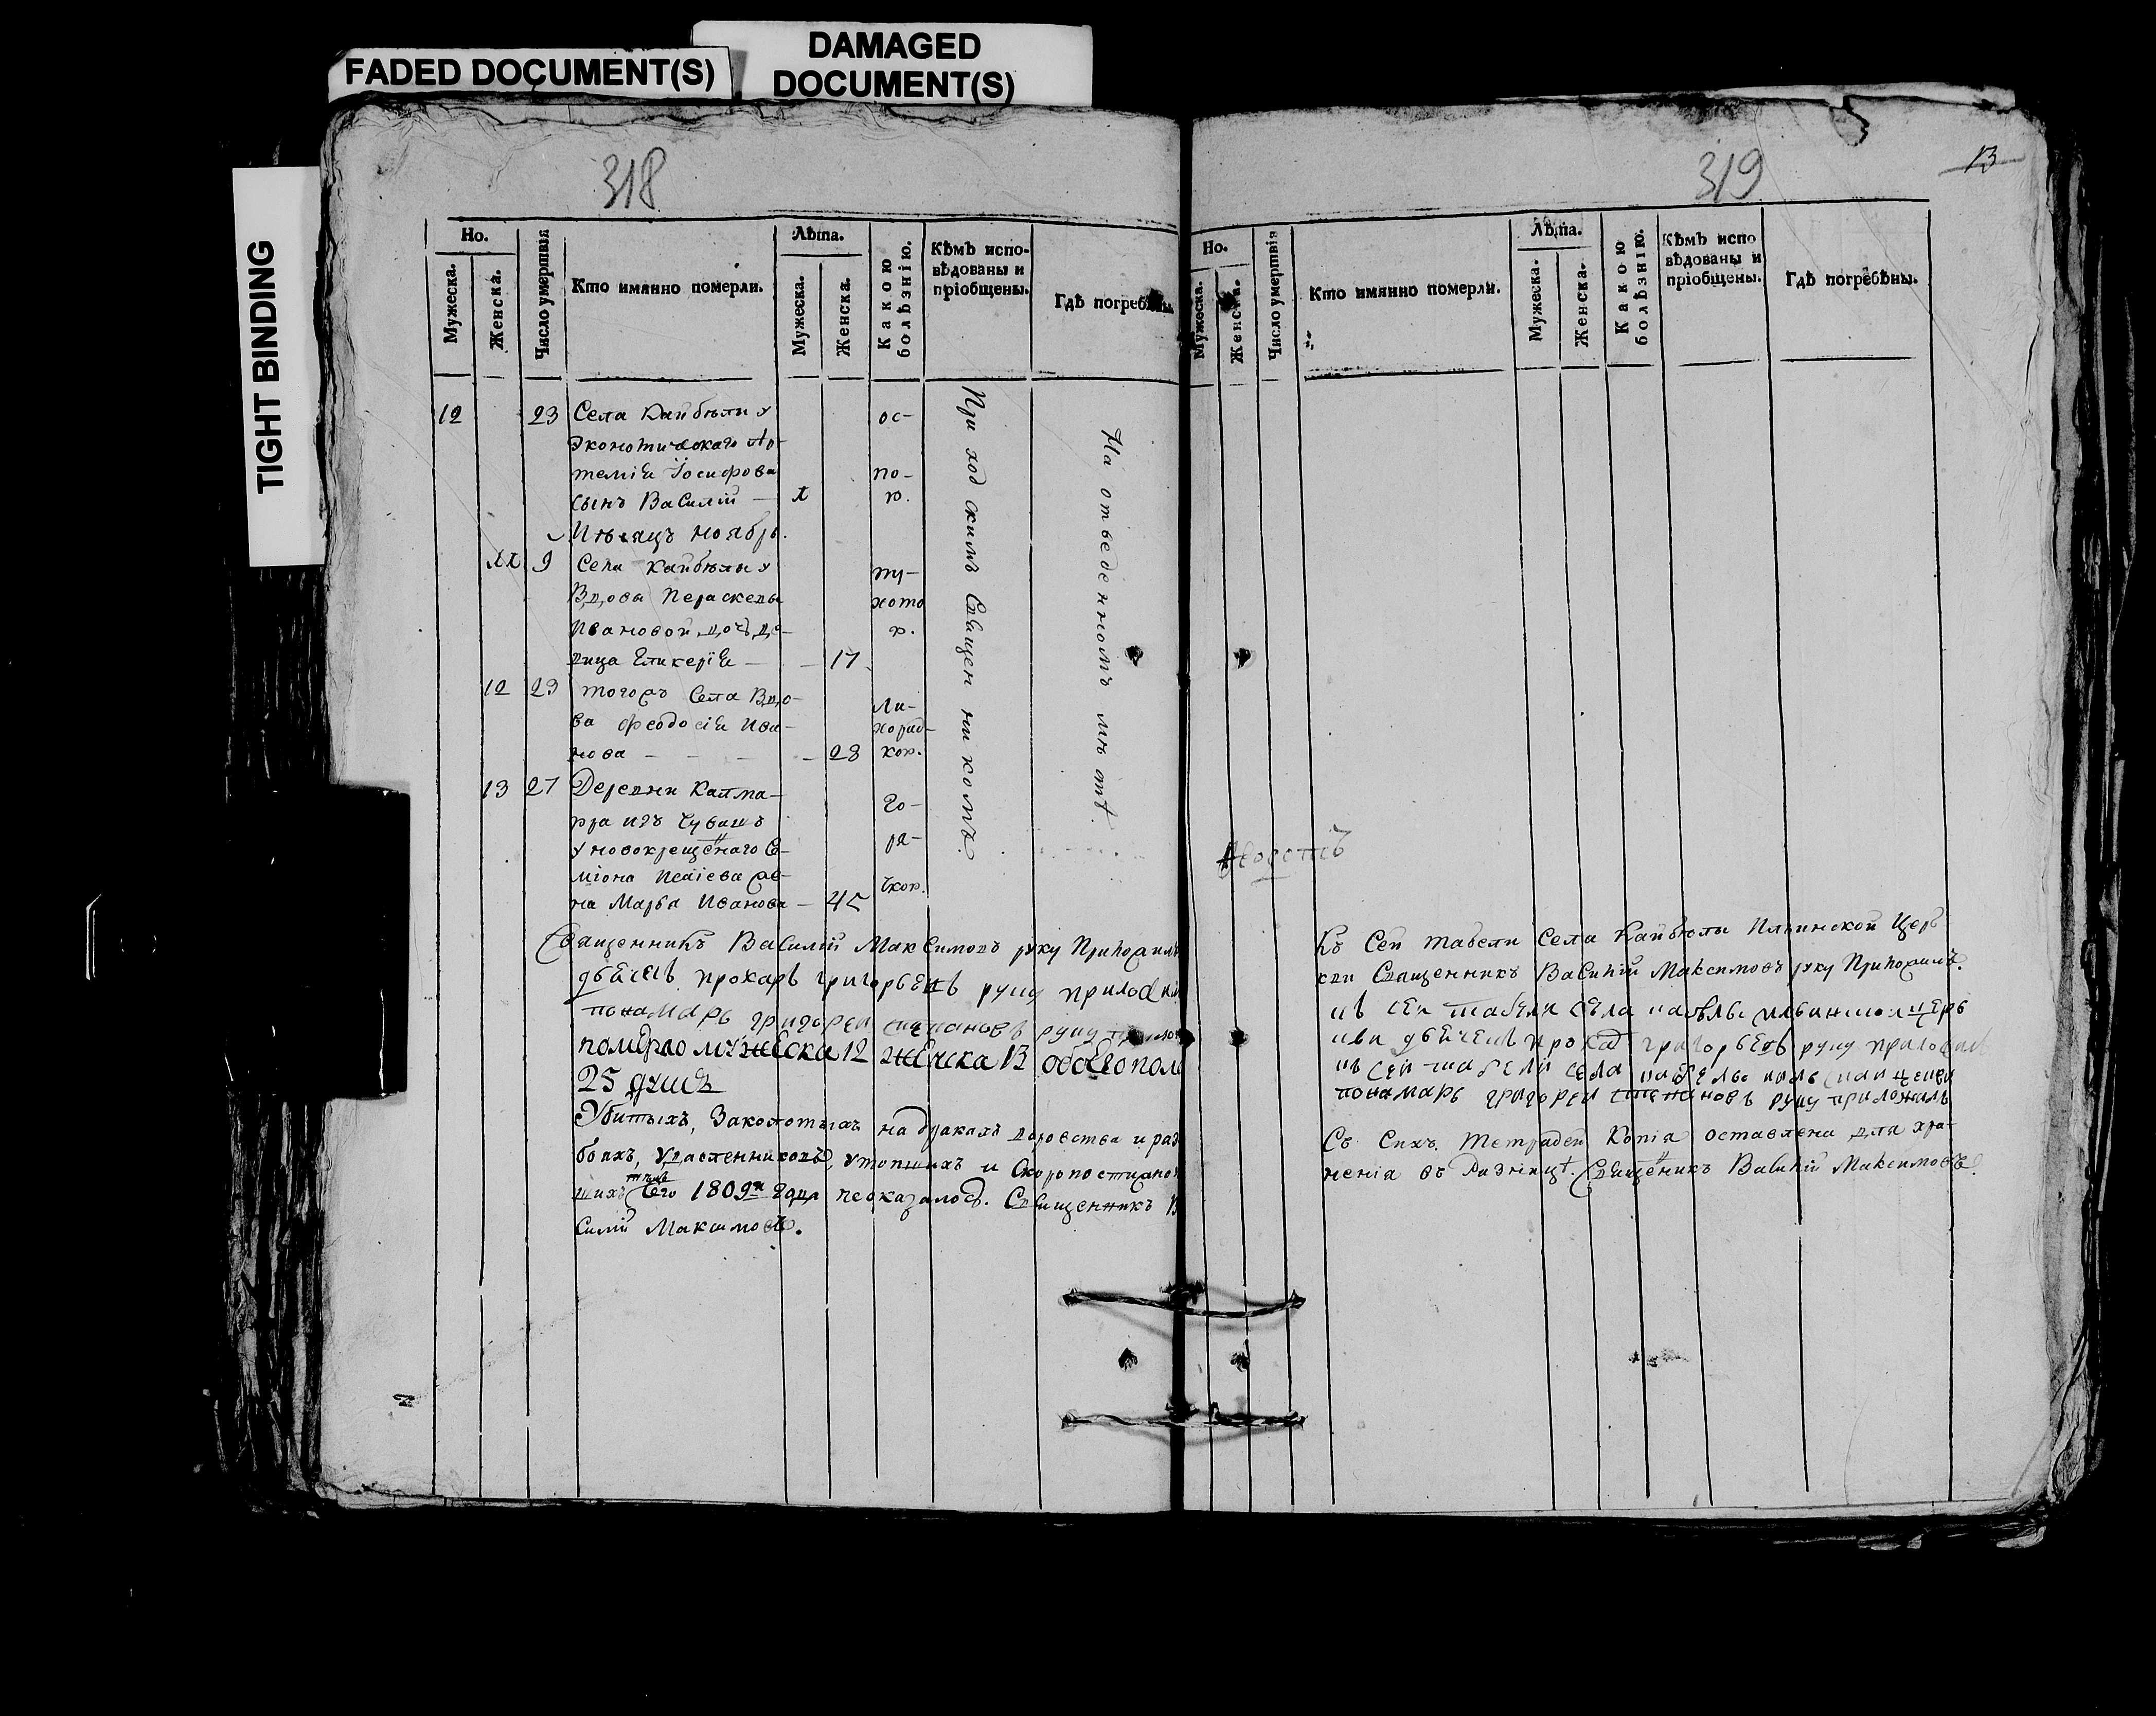 DAMAGED
DOCUMENT(S)
FADED DOCUMENT(S)
TIGHT BINDING
318
Но.
Мужеска.
Женска.
Число умертвія
Кто имянно померли.
Лѣта.
Мужеска.
Женска.
Какою
болѣзнію.
Кѣмъ испо-
вѣдованы и
пріобщены.
Гдѣ погребены
12 23 Села Кайбѣлы у ос-
Экономическаго Ар-
темія Іосифова по-
сынъ Василій — ю.
Мѣсяцъ ноябрь.
9 Села Кайбѣлы у
Вдова Параскевы
Ивановой дочь дѣ-
вица Гликерія — 17
12 23 тогожъ Села Вдо- Ли-
ва Феодосія Ива- хорад-
нова — — — 28 кою.
13 27 Деревни Калма-
юра изъ Чувашъ Го-
у новокрещеннаго Се- ря-
міона Исаіева же- чкою.
на Марѳа Иванова — 45
Приходскимъ Священникомъ.
На отведенномъ мѣстѣ.
Священникъ Василій Максимовъ руку Приложилъ
дьячекъ прохаръ григорьевъ руку приложил
понамарь григореи степановъ руку
померло мужеска 12 женска 13 обоего пола
25 душъ
Убитыхъ, Заколотыхъ на дракахъ воровства и раз
боихъ, удавленниковъ, утопшихъ и Скоропостижно
шихъ Сего 1809го Года неоказалось. Священникъ В
силій Максимовъ.
319
13
Но.
Мужеска.
Женска.
Число умертвія
Кто имянно померли.
Лѣта.
Мужеска.
Женска.
Какою
болѣзнію.
Кѣмъ испо
вѣдованы и
пріобщены.
Гдѣ погребѣны.
Къ Сей табели Села Кайбѣлы Ильинской Цер
кви Священникъ Василій Максимовъ руку Приложилъ.
къ сеи табели села ильинскои церь
кви дьячекъ прохар григорьевъ руку приложил
къ сеи табели села
понамарь григореи степановъ руку приложилъ
Съ Сихъ Тетрадей Копія оставлена для хра-
ненія въ Ризницѣ. Священникъ Василій Максимовъ.